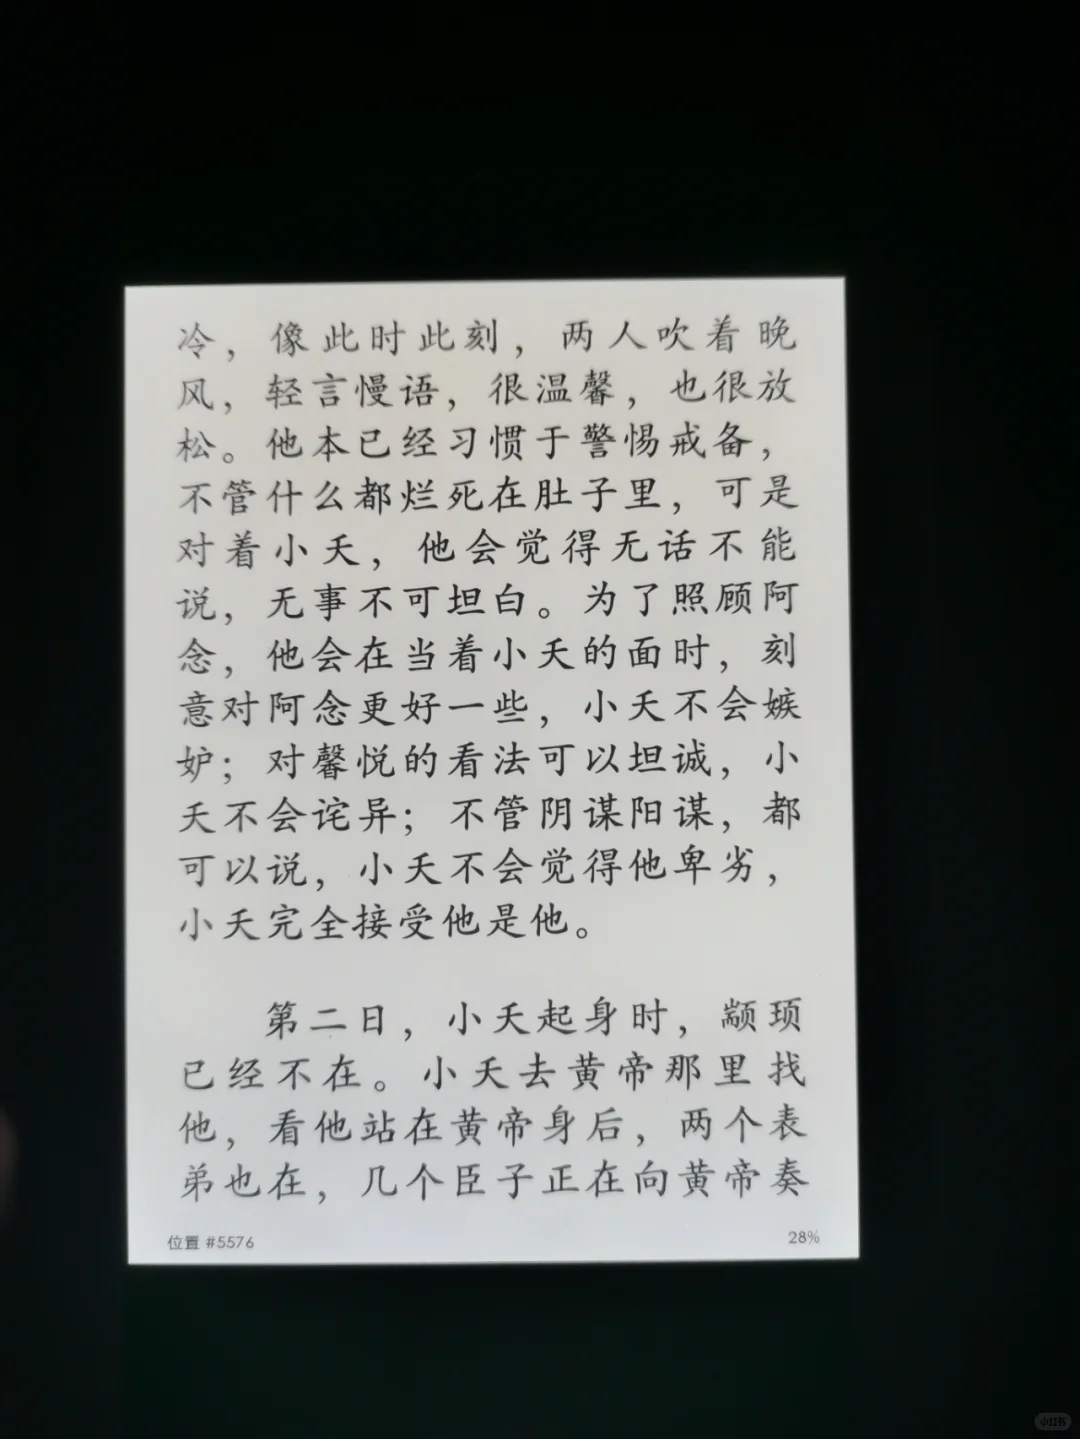 冷，像此时此刻，两人吹着晚
风，轻言慢语，很温馨，也很放
松。他本已经习惯于警惕戒备，
不管什么都烂死在肚子里，可是
对着小夭，他会觉得无话不能
说，无事不可坦白。为了照顾阿
念，他会在当着小夭的面时，刻
意对阿念更好一些，小夭不会嫉
妒；对馨悦的看法可以坦诚，小
夭不会诧异；不管阴谋阳谋，都
可以说，小夭不会觉得他卑劣，
小夭完全接受他是他。
第二日，小夭起身时，颛顼
已经不在。小夭去黄帝那里找
他，看他站在黄帝身后，两个表
弟也在，几个臣子正在向黄帝奏
位置 #5576
28%
小红书